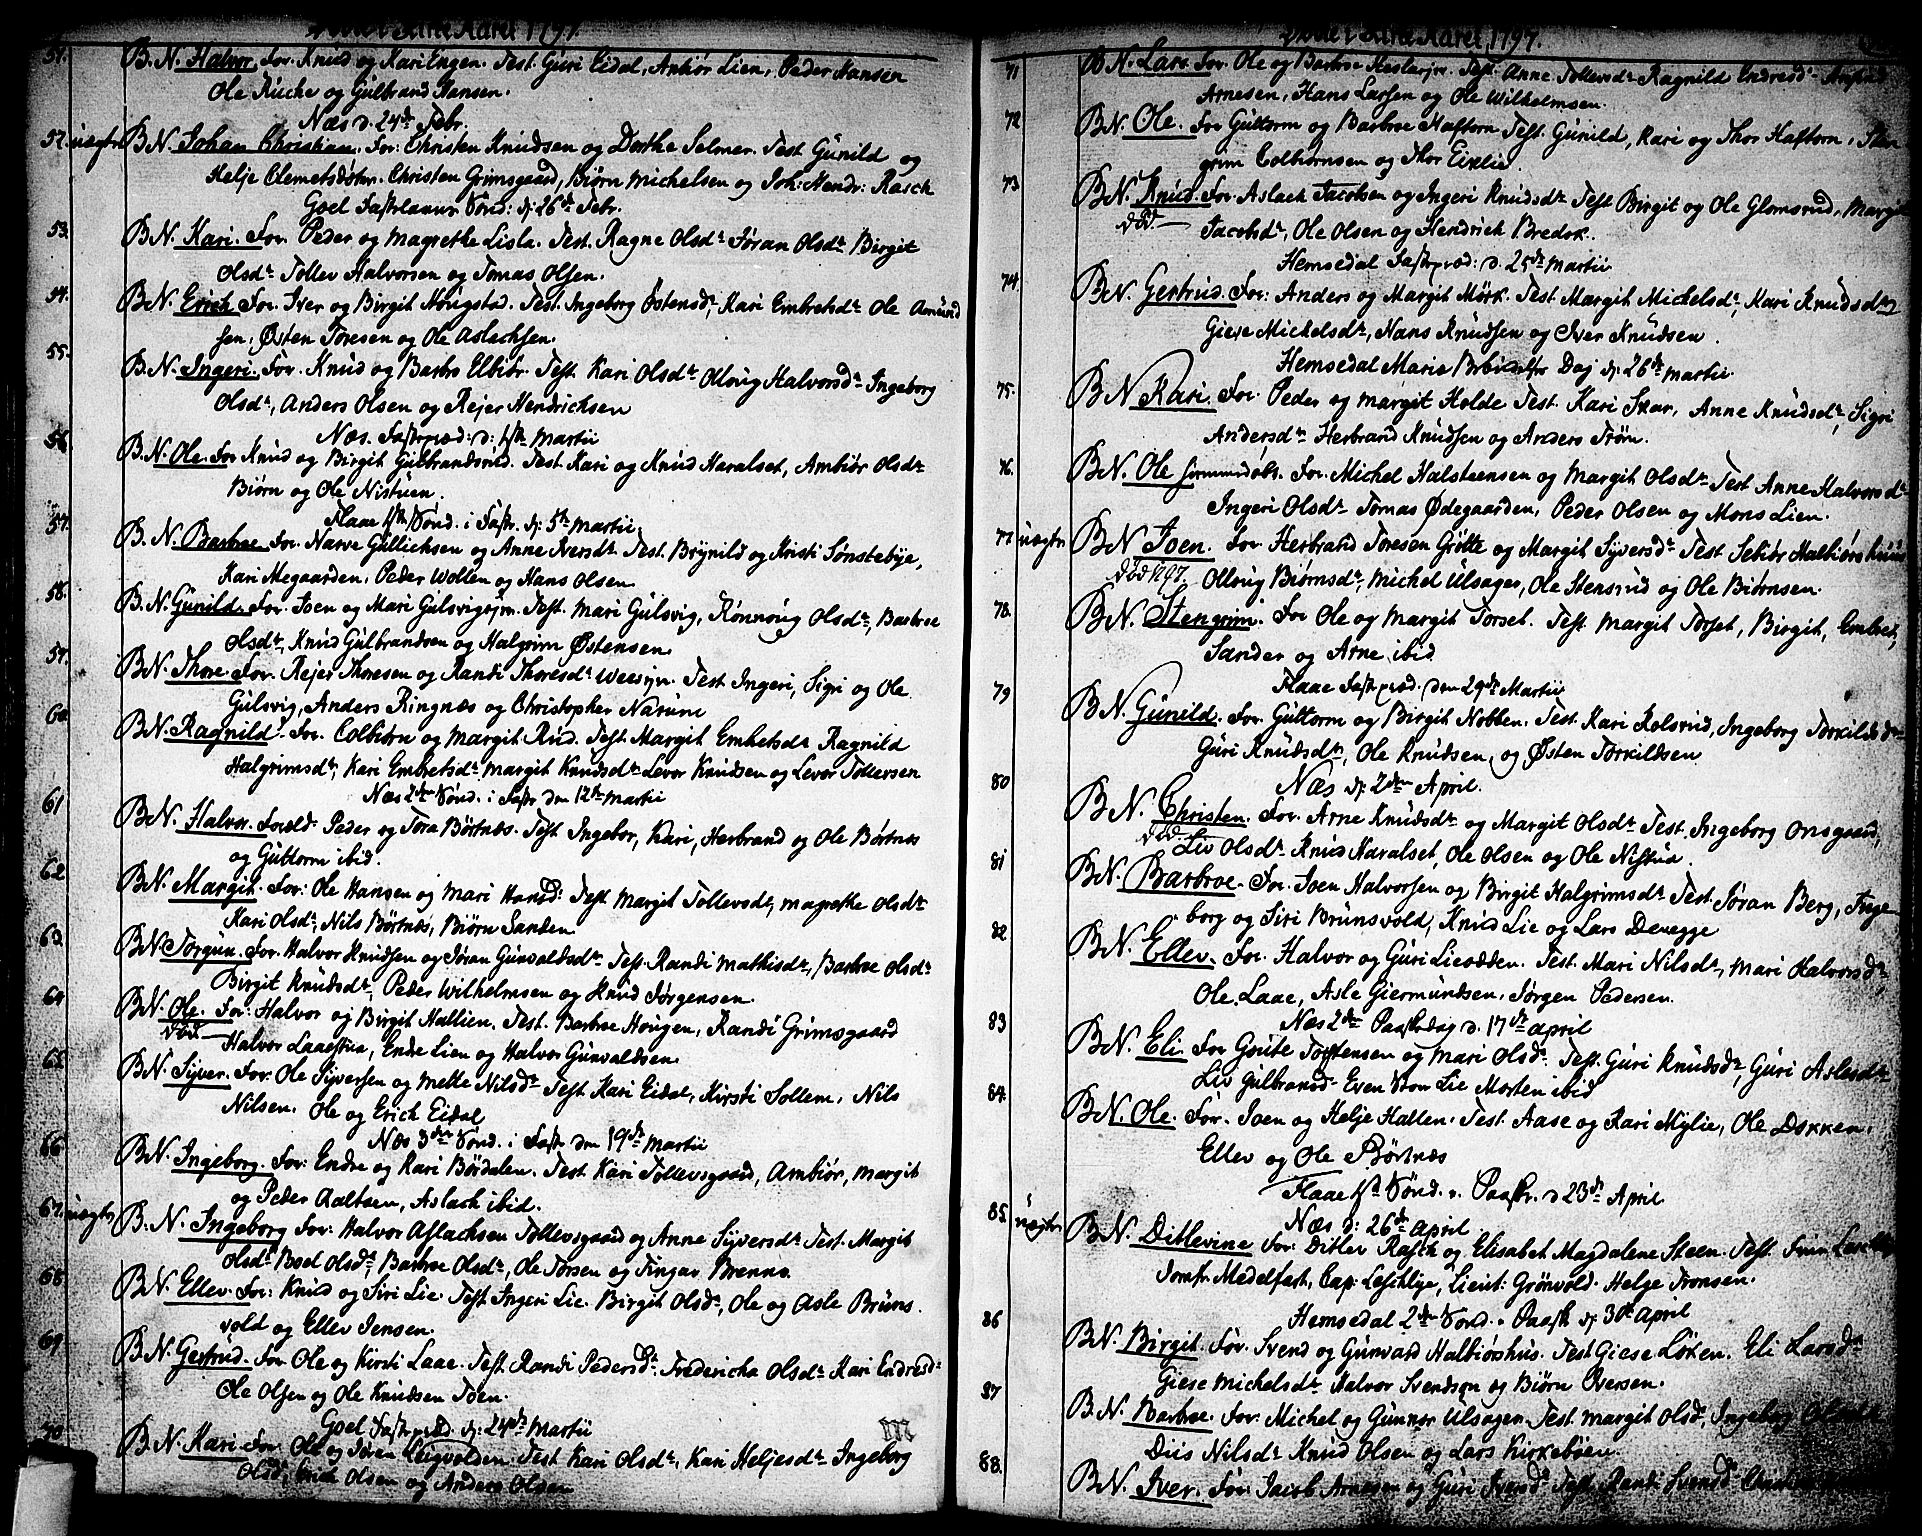 Aaret 1797.
51. B. N. Halvor. For. Knud og Kari Engen. Test. Guri Eidal, Anbiør Lien, Peder Hansen
Ole Rüche og Gulbrand Hansen.
Næs d. 24de Febr.
52. uægte B. N. Johan Christian. For: Christen Knudsen og Dorthe Selmer. Test. Gunild og
Helje Clemetsdøtre. Christen Grimsgaard, Biørn Michelsen og Joh: Hendr: Rasch
Goel Fastelauns Sønd: d: 26de Febr.
53. B. N. Kari. For. Peder og Magrethe Lisla. Test. Ragne Olsdr Jøran Olsdr Birgit
Olsdr. Tollev Halvorsen og Tomas Olsen.
54. B. N. Erich For. Iver og Birgit Hougstad. Test. Ingeborg Østensdr, Kari Embretsdr Ole Amund
sen, Østen Toresen og Ole Aslachsen.
55. B. N. Ingeri. For. Knud og Barbro Elbiør. Test. Kari Olsdr Ollaug Halvorsdr Ingeborg
Olsdr, Anders Olsen og Rejer Hendrichsen
Næs. Fastepræd: d: 1ste Martii
56. B. N. Ole. For Knud og Birgit Gulbrandsrud. Test. Kari og Knud Haralset, Ambiør Olsdr
Biørn og Ole Nistuen.
Flaae 1ste Sønd. i Fast. d: 5te Martii
57. B. N. Barbroe For. Narve Gullichsen og Anne Iversdr Test. Brynild og Kristi Sønstebye,
Kari Megaarden, Peder Wollen og Hans Olsen.
58. B. N. Gunild. For. Joen og Mari Gulsvigejer. Test. Mari Gulsvig, Rønnoug Olsdr, Barbroe
Olsdr, Knud Gulbrandsen og Halgrim Østensen.
59. B N. Thore For. Rejer Thoresen og Randi Thoresdr Weesejer. Test Ingeri, Sigri og Ole
Gulsvig, Anders Ringnæs og Christopher Narum
60. B N. Ragnild For. Colbiørn og Margit Rud. Test. Margit Embretsdr Ragnild
Halgrimsdr, Kari Embretsdr Margit Knudsdr Levor Knudsen og Levor Tollevsen
Næs 2den Sønd. i Faste den 12te Martii
61 B N. Halvor. Foreld: Peder og Tora Børtnæs. Test. Ingebor, Kari, Herbrand og Ole Børtnæs
og Guttorm ibid.
62 B N. Margit. For: Ole Hansen og Mari Hansd: Test. Margit Tollevsdr, Magrethe Olsdr
Kari Olsdr, Nils Børtnæs, Biørn Sanden
63. B N. Torgun. For. Halvor Knudsen og Jøran Gunvaldsdr Test. Randi Mathisdr, Barbroe Olsdr
Birgit Knudsdr, Peder Wilhelmsen og Knud Jørgensen.
64 B N. Ole. For: Halvor og Birgit Hallien. Test. Barbroe Hougen, Randi Grimsgaard
død Halvor Laaestua, Ende Lien og Halvor Gunvaldsen.
65. B N. Syver. For. Ole Syversen og Mette Nilsdr Test. Kari Eidal, Kirsti Sollem, Nils
Nilsen. Ole og Erich Eidal
Næs 3die Sønd. i Fast den 19de Martii
66 B N. Ingeborg. For: Endre og Kari Børdalen. Test. Kari Tollevsgaard, Ambiør, Margit
og Peder Aaltsen, Aslach ibid.
67. uægte B. N. Ingeborg For: Halvor Aslachsen Tollevsgaard og Anne Syversdr Test. Margit
Olsdr Boel Olsdr, Barbroe Olsdr, Ole Torsen og Tingar Brenna.
68. B N. Ellev. For: Knud og Siri Lie. Test. Ingeri Lie. Birgit Olsdr, Ole og Asle Bruns
vold og Ellev Jensen.
69 B. N. Gertrud. For Ole og Kirsti Laae. Test. Randi Pedersdr. Fredericha Olsdr Kari Endresdr
Ole Olsen og Ole Knudsen Toen.
Goel Fastepræd d: 24de Martii
70 B N. Kari For Ole og Jøren Leigvolden. Test Kari Olsdr, Kari Heljesdr Ingeborg
Olsdr, Erich Olsen og Anders Olsen
Aaret 1797.
71 B N. Lars. For. Ole og Barbroe Heslaejer. Test. Anne Tollevsdr Ragnild Endresdr
Arnesen, Hans Larsen og Ole Wilhelmsen.
72 B N. Ole. For Guttorm og Barbroe Haftorn Test. Gunild, Kari og Thor Haftorn, Sten
grim Colbiørnsen og Thor Eiklie.
73 B N. Knud. For. Aslach Jacobsen og Ingeri Knudsdr Test Birgit og Ole Glomsrud, Margit
død. Jacobsdr, Ole Olsen og Hendrich Bredok.
Hemsedal Fastepræd: d. 25de Martii
74. B N. Gertrud. For: Anders og Margit Mørk. Test. Margit Michelsdr, Kari Knudsdr
Giese Mickelsdr, Hans Knudsen og Iver Knudsen.
Hemsedal Mariæ Dag d: 26de Martii
75. B N Kari. For. Peder og Margit Holde Test. Kari Skar, Anne Knudsdr, Sigri
Andersdr Herbrand Knudsen og Anders Trøn.
76. B N. Ole For. Michel Halsteensen og Margit Olsdr Test Anne Halvorsdr
Ingeri Olsdr Tomas Ødegaarden, Peder Olsen og Mons Lien.
77 uægte B N Joen. For Herbrand Toresen Grøtte og Margit Syversdr Test Sebiør Halbiørshuus
død 1797. Ollaug Biørnsdr, Michel Ulsager, Ole Stensrud og Ole Biørnsen.
78. B N. Stengrim. For Ole og Margit Torset. Test. Margit Torset, Birgit, Embret,
Sander og Arne ibid
Flaae Fastepræd. den 29de Martii
79 B N. Gunild. For. Guttorm og Birgit Nobben. Test. Kari Rolsrud, Ingeborg Torkildsdr
Guri Knudsdr, Ole Knudsen, og Østen Torkildsen
Næs d: 2den April.
80 B N. Christen. For. Arne Knudsdr og Margit Olsdr Test. Ingeborg Onsgaard,
død. Liv Olsdr Knud Haralset, Ole Olsen og Ole Nistua.
81 B N. Barbroe. For. Joen Halvorsen og Birgit Halgrimsdr Test. Jøran Berg, Inge
borg og Siri Brunsvold, Knud Lie og Lars Devegge
82 B N. Ellev. For. Halvor og Guri Lieodden. Test. Mari Nilsdr, Mari Halvorsdr,
Ole Laae, Asle Giermundsen, Jørgen Pedersen.
Næs 2den Paaskedag d. 17de April
83 B N. Eli For Goute Torstensen og Mari Olsdr. Test. Guri Knudsdr, Guri Aslesdr
Liv Gulbransdr Even Stom Lie Morten ibid
84. B N. Ole. For. Joen og Helje Hallen. Test. Aase og Kari Mylie, Ole Dokken,
Ellev og Ole Børtnæs
Flaae 1ste Sønd. e. Paaske. d 23de April
Næs d: 26de April.
85. uægte B N. Ditlevine For: Ditlev Rasch og Elisabet Magdalene Steen. Test.
Jomfr. Medelfart, Cap: Leschlye, Lieut: Grønvold. Helge Tronsen.
Hemsedal 2den Sønd. e. Paask d: 30te April
86 B N. Birgit. For. Svend og Gunvard Halbiørshus. Test Giese Løken. Eli Larsdr
Giese Michelsdr Halvor Svendsen og Biørn Iversen.
87 B N. Barbroe. For. Michel og Gunnor Ulsagen. Test. Margit Olsdr, Ingeborg
Diis Nilsdr Knud Olsen og Lars Kirkebøen.
88. B N. Iver. For. Jacob Arnesen og Guri Iversdr Test Randi Svensdr